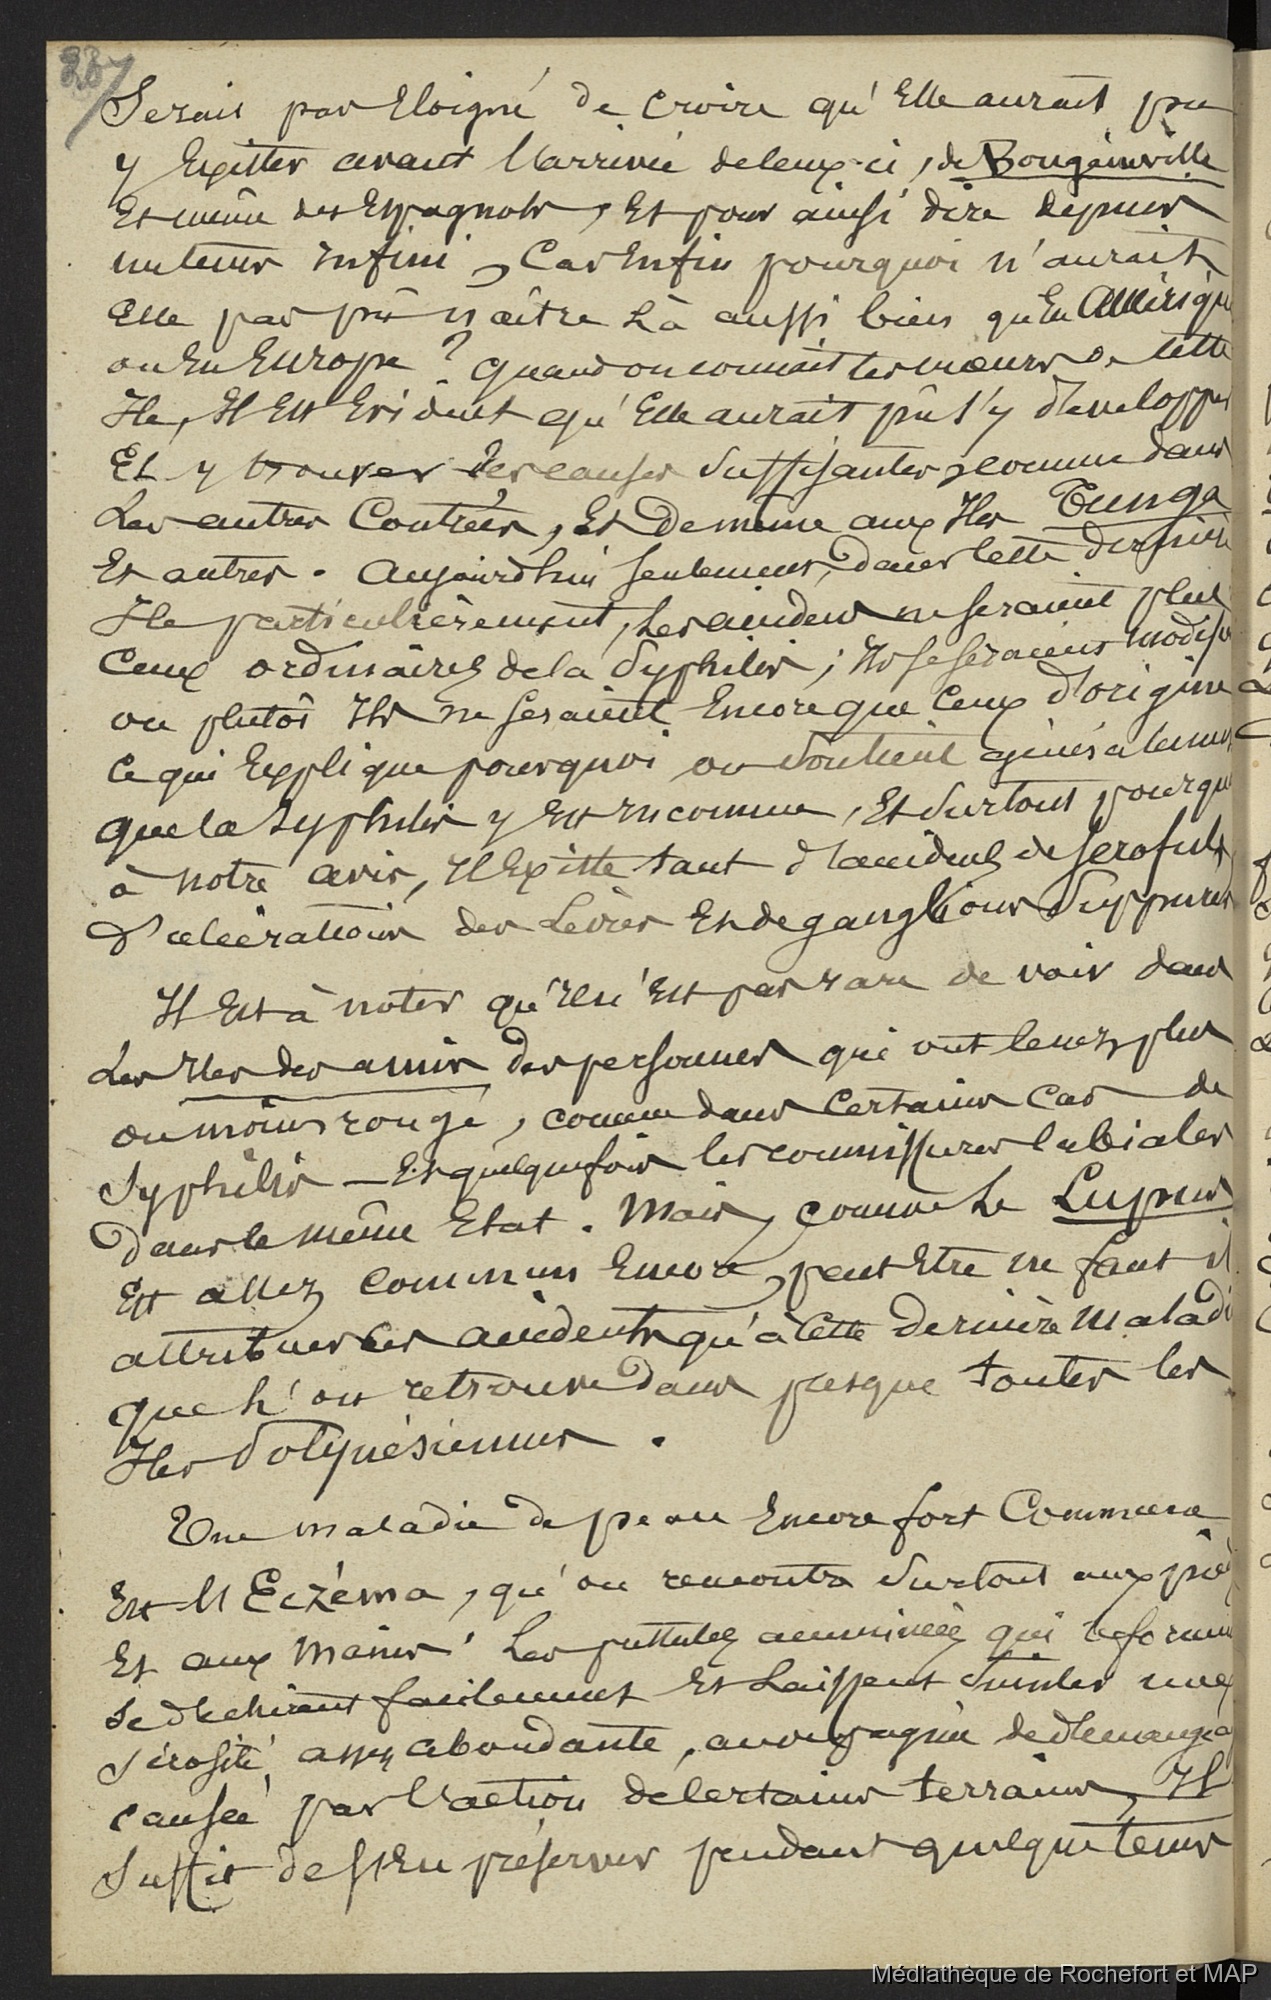 237
Serais pas Eloigné de croire qu'Elle aurait pu
y Exister avant l'arrivée de ceux-ci, de Bougainville
Et même des Espagnols, Et pour ainsi dire depuis
un tems infini, Car Enfin pourquoi n'aurait
Elle pas pû naître Là aussi bien qu'En Amérique
ou En Europe ? quand on connait les mœurs de cette
Ile, Il Est Evident qu'Elle aurait pû s'y développer
Et y trouver des causes suffisantes, comme dans
Les autres Contrées, Et de même aux Iles Tunga
Et autres. Aujourd'hui seulement, dans cette dernière
Ile particulièrement, Les accidens ne seraient plus
Ceux ordinaires de la Syphilis ; Ils se seraient modifiés
ou plutôt Ils ne seraient Encore que Ceux d'origine
Ce qui Explique pourquoi on soutient généralement
que la Syphilis y Est inconnue, Et surtout pourquoi
à notre avis, Il Existe tant d'accidens de scrofules
d'ulcérations des Lèvres Et de ganglions suppurés
Il Est à noter qu'il n'Est pas rare de voir dans
Les Iles des amis des personnes qui ont le nez plus
ou moins rouge, comme dans Certains Cas de
Syphilis — Et quelquefois les commissures labiales
dans le même Etat. Mais, comme Le Lupus
Est assez commun Encore, peut Etre ne faut il
attribuer ces accidents qu'à Cette dernière Maladie
que L'on retrouve dans presque toutes les
Iles Polynésiennes.
Une maladie de peau Encore fort Commune
Est l'Eczéma, qu'on rencontre surtout aux pieds
Et aux Mains. Les pustules acuminées qui le forment
se déchirent facilement Et Laissent suinter une
sérosité assez abondante, accompagnée de démangeaison
causée par l'action de certains terrains, Il
suffit de s'En préserver pendant quelque tems
Médiathèque de Rochefort et MAP